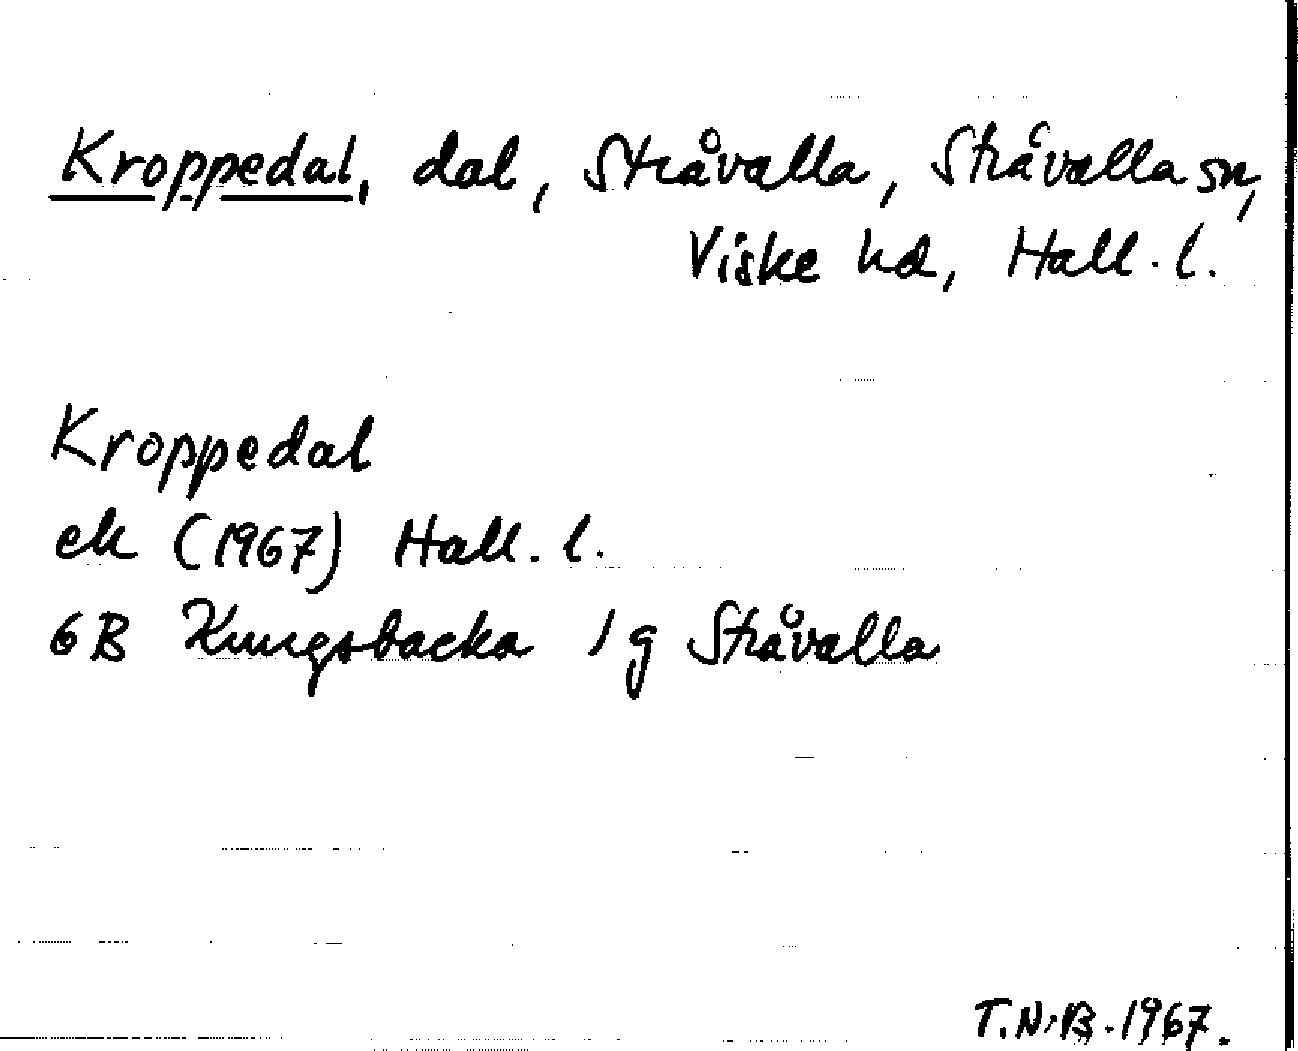 Kroppedal, dal, Stråvalla, Stråvalla sn,
Viske hd, Hall. l.
Kroppedal
ek (1967) Hall. l.
6B Kungsbacka 1 g Stråvalla
T.N.B. 1967.